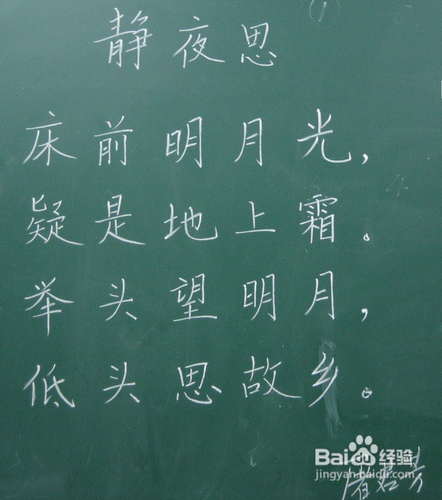 静夜思
床前明月光，
疑是地上霜。
举头望明月，
低头思故乡。
Baidu经验
jingyan.baidu.com